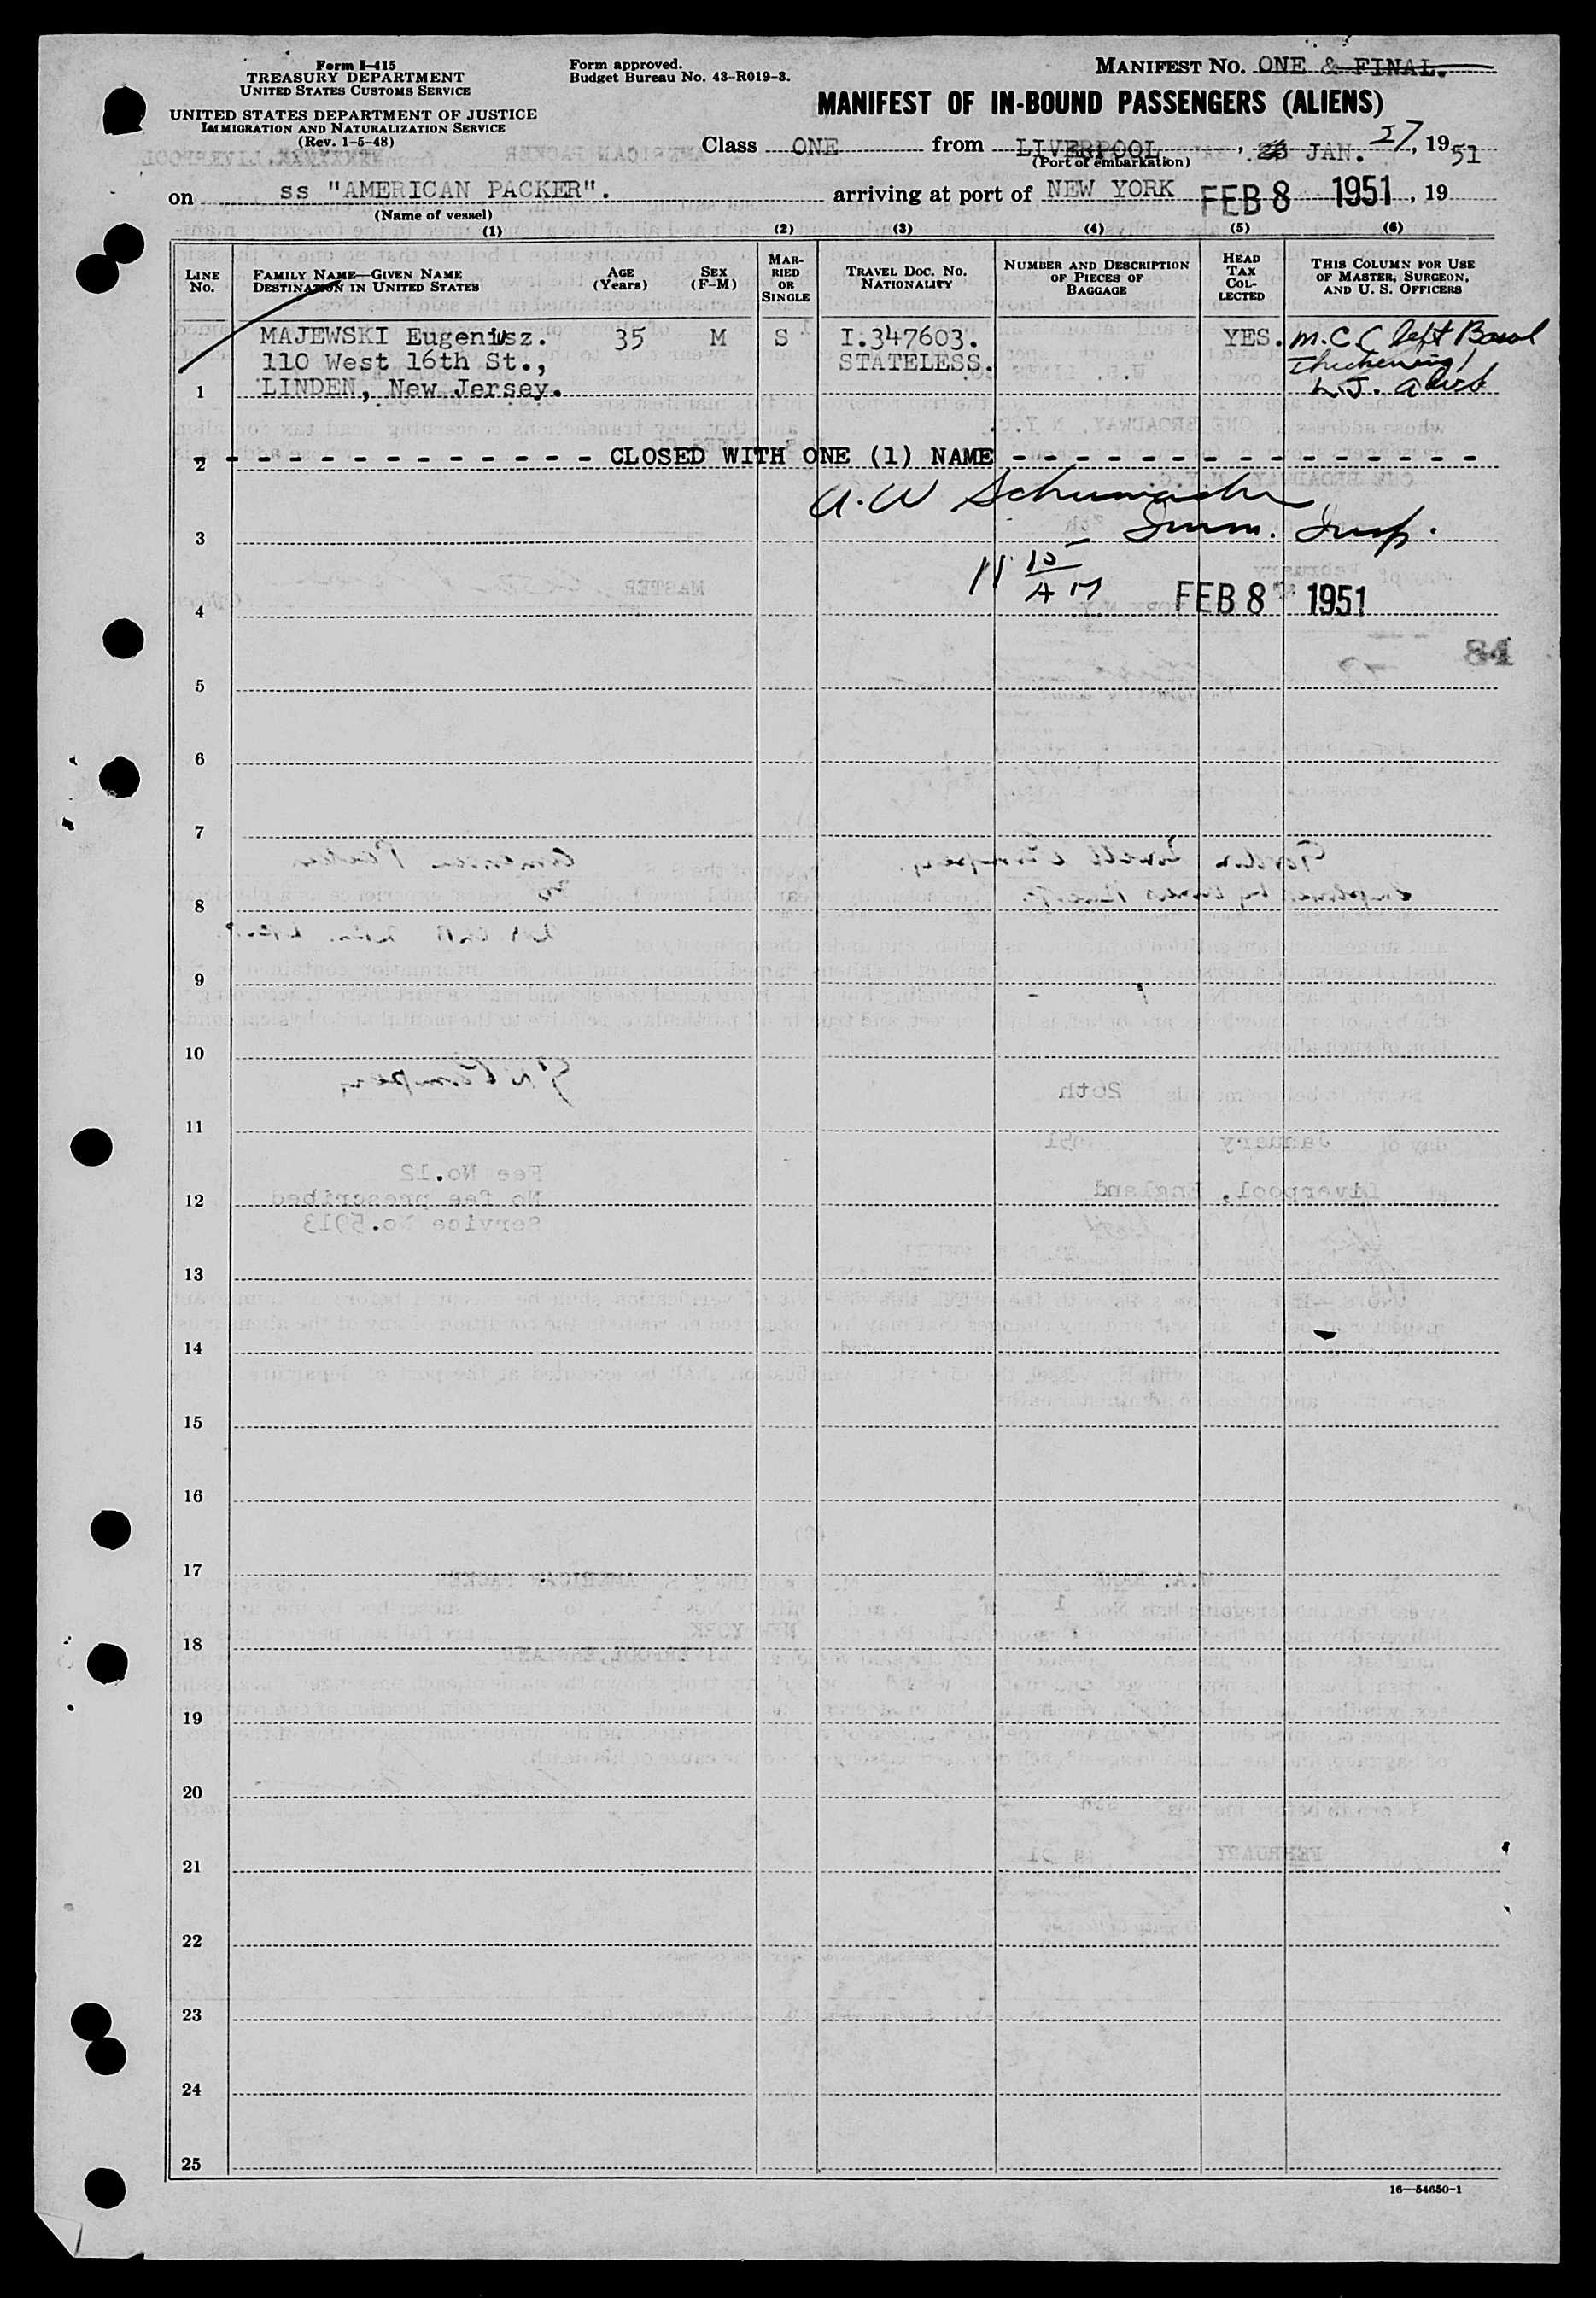 Form I-415
TREASURY DEPARTMENT
UNITED STATES CUSTOMS SERVICE
UNITED STATES DEPARTMENT OF JUSTICE
IMMIGRATION AND NATURALIZATION SERVICE
(Rev. 1-5-48)
Form approved.
Budget Bureau No. 43-R019-3.
MANIFEST NO. ONE & FINAL.
MANIFEST OF IN-BOUND PASSENGERS (ALIENS)
Class ONE from LIVERPOOL, 26 JAN. 27, 1951
(Port of embarkation)
on ss "AMERICAN PACKER". arriving at port of NEW YORK FEB 8 1951, 19
(Name of vessel)
(1) (2) (3) (4) (5) (6)
LINE NO.
FAMILY NAME—GIVEN NAME
DESTINATION IN UNITED STATES
AGE (Years)
SEX (F-M)
MARRIED OR SINGLE
TRAVEL DOC. NO. NATIONALITY
NUMBER AND DESCRIPTION OF PIECES OF BAGGAGE
HEAD TAX COLLECTED
THIS COLUMN FOR USE OF MASTER, SURGEON, AND U. S. OFFICERS
MAJEWSKI Eugeniusz. 35 M S I.347603. YES. M.C. left
110 West 16th St., STATELESS. thickening
1 LINDEN, New Jersey.
2 CLOSED WITH ONE (1) NAME
A. W Schumacher
3 Imm. Insp.
11 15 AM
4 FEB 8 1951
84
5
6
7
8
9
10
11
12
13
14
15
16
17
18
19
20
21
22
23
24
25
16—54650-1